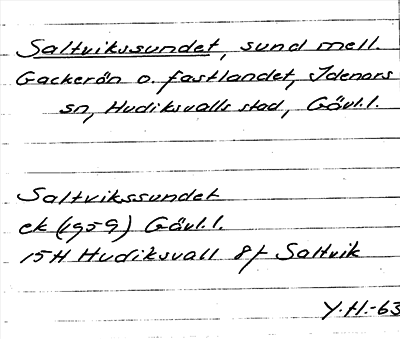 Saltvikssundet, sund mell.
Gackerön o. fastlandet, Idenors
sn, Hudiksvalls stad, Gävl.l.
Saltvikssundet
ek (1959) Gävl.l.
15H Hudiksvall 8f Saltvik
Y.H.-63